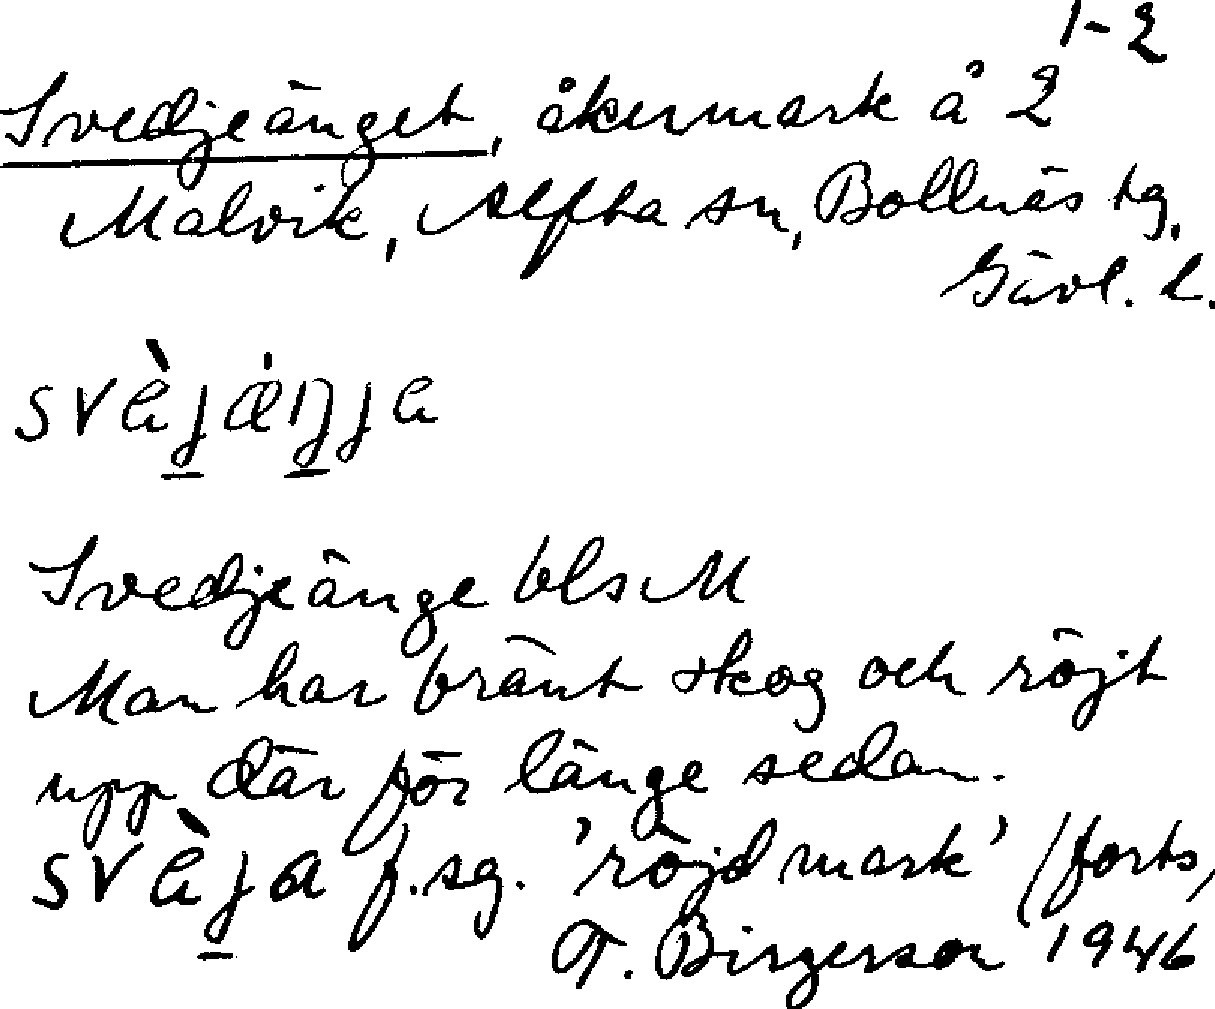 1-2
Svedjeänget, åkermark å 2
Malvik, Alfta sn, Bollnäs tg,
Gävl. l.
Svedjeänge bls M
Man har bränt skog och röjt
upp där för länge sedan.
f.sg. 'röjd mark' (forts,
T. Birgerson 1946